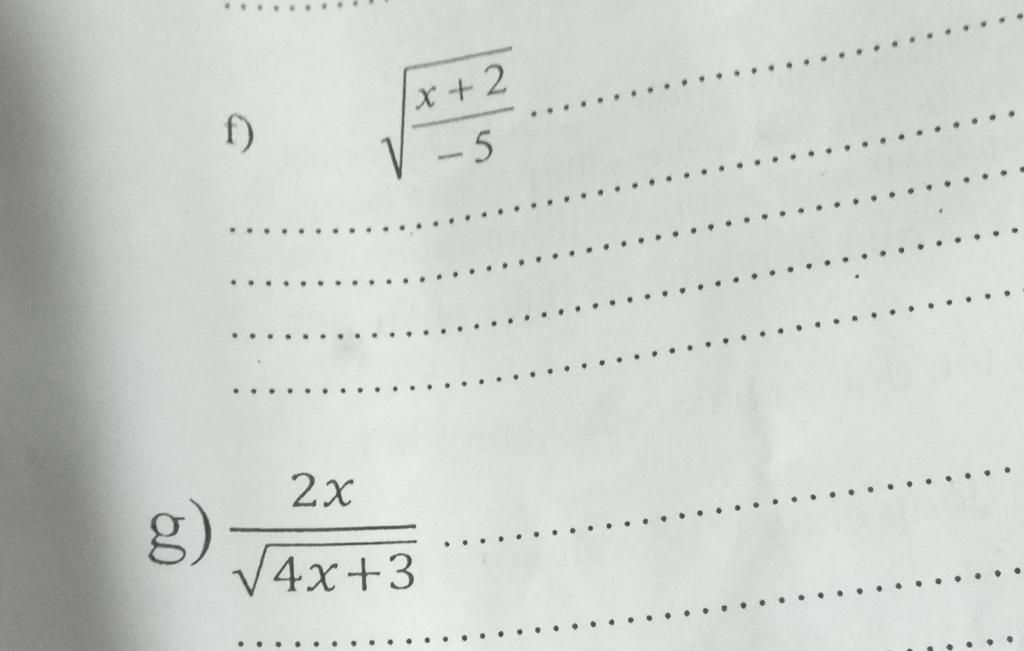 f) √((x + 2)/(– 5))
g) 2x/√(4x+3)